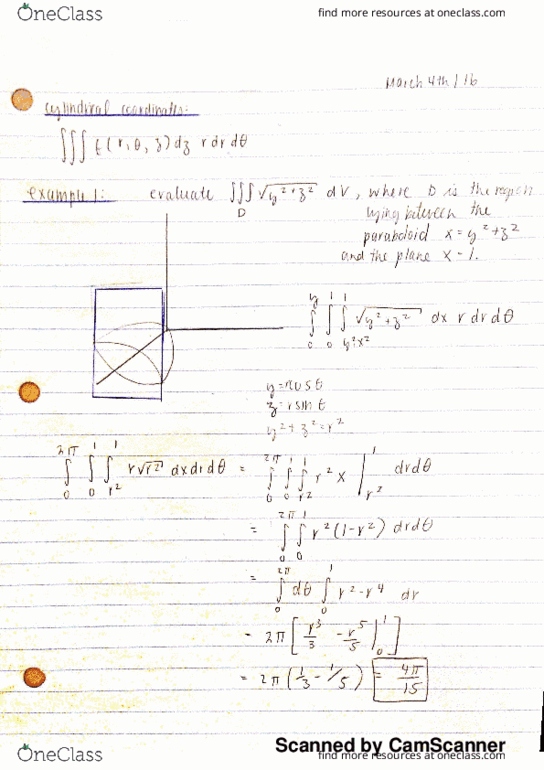 OneClass
find more resources at oneclass.com
March 4th / 16
cylindrical coordinates:
∭ f(r, θ, z) dz r dr dθ
example 1: evaluate ∭_D √(y²+z²) dV, where D is the region
lying between the
paraboloid x = y²+z²
and the plane x = 1.
∫₀ ∫₀¹ ∫¹ √(y²+z²) dx r dr dθ
y = r cos θ
z = r sin θ
y² + z² = r²
∫₀^{2π} ∫₀¹ ∫_{r²}^1 r√r² dx dr dθ = ∫₀^{2π} ∫₀¹ ∫_{r²}^1 r² x |_{r²}^1 dr dθ
= ∫₀^{2π} ∫₀¹ r² (1-r²) dr dθ
= ∫₀^{2π} dθ ∫₀¹ r² - r⁴ dr
= 2π [ r³/3 - r⁵/5 |₀¹ ]
= 2π (1/3 - 1/5) = 4π/15
Scanned by CamScanner
OneClass
find more resources at oneclass.com